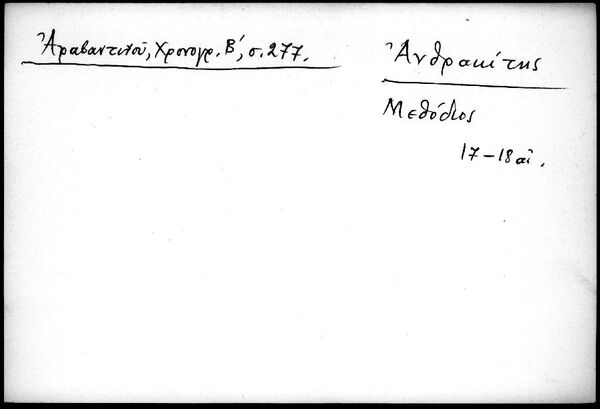 Ἀραβαντινοῦ, Χρονογρ. Β', σ. 277.
Ἀνθρακίτης
Μεθόδιος
17-18 αἰ.